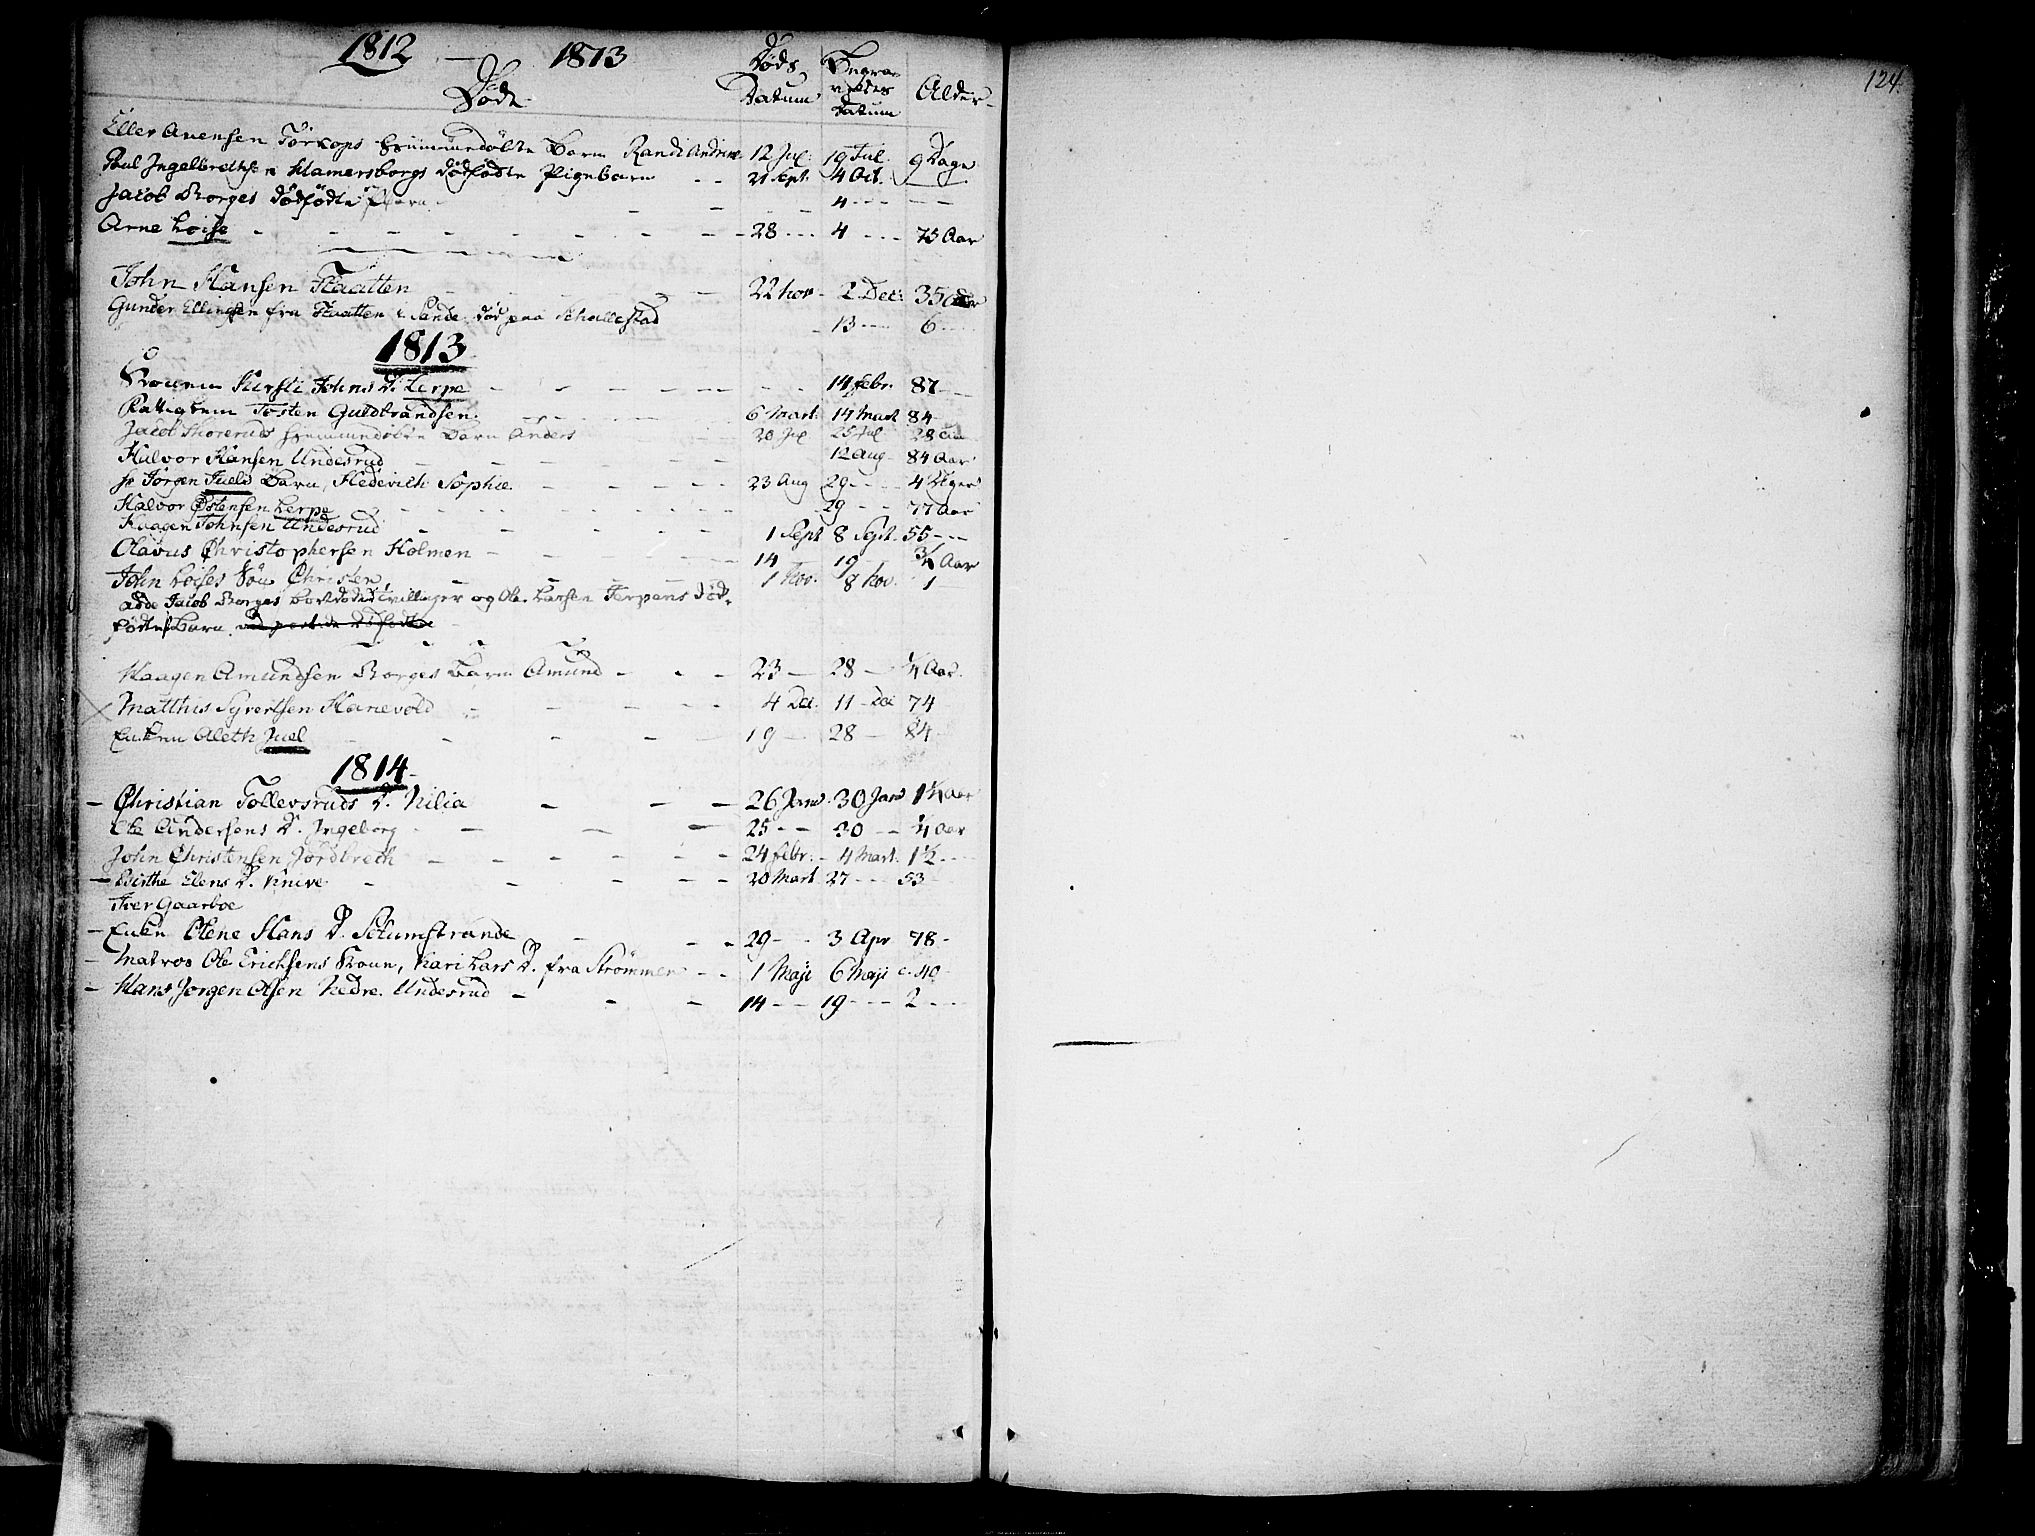 1812 — 1813
Døde
Døds Datum
Begravelses Datum
Alder
124.
Eller Avensen Torkops hjemmedøbte Barn Randi Andrine 12 Jul: 19 Jul. 9 Dage
Poul Ingelbrethsen Hamersborgs dødfødte Pigebarn - - 21 Sept. 4 Oct.
Jacob Borges dødfødte Barn - - 4 - - -
Arne Loise - - 28 - - 4 - - 73 Aar
John Hansen Flaatten - - 22 Nov - 2 Dec: 35 Aar
Gunder Ellingsen fra Flaatten i Sande død paa Schallestad - 13 - - 6 - -
1813
Konen Kirsti Johns D. Lerpe - - 14 febr. 87 - -
Tosten Guldbrandsen. - - 6 Mart. 14 Mart 84 -
Jacob hjemmedøbte Barn Anders 20 Jul 25 Jul 28
Halvor Hansen Undesrud - - 12 Aug - 84 Aar
Hr Jørgen Juels Barn, Hedevich Sophie - - 23 Aug 29 - - 4 Uger
Halvor Østensen Lerpe - - 29 - - 77 Aar
Haagen Johnsen Undesrud - - 1 Sept 8 Sept. 55 - - -
Olavus Christophersen Holmen - - 14 19 3/4 Aar
John Loises Søn Christen - - 1 Nov. 8 Nov. 1
Jacob Borges Tvillinger og Ole Larsen Terpens død-
fødte Barn
Haagen Amundsen Borges Barn Amund - - 23 - 28 - 1/4 Aar.
Matthis Syvertsen Hanevold - - 4 Dec. 11 - Dec 74
Enken Aleth Juel - - 19 - 28 - 84 -
1814
- Christian Tollevsruds D. Nilia - - 26 Janv. 30 Janv 1 1/4 Aar
Ole Andersens D. Ingeborg - - 25 - - 30 - - 1/4 Aar
John Christensen Jordbrech - - 24 febr. - 4 Mart. 1 1/2 - -
- Birthe Elens D. Knive - - 20 Mart 27 - - 53 -
Iver Gaarboe
- Enken Olene Hans D. Solumstrande - - 29 - - 3 Apr 78 -
- Matros Ole Erichsens Kone, Kari Lars D. fra Strømmen - - 1 Maji 6 Maji c. 40
- Hans Jørgen Olsen Nedre. Undesrud - - 14 - - 19 - - - 2 - - -